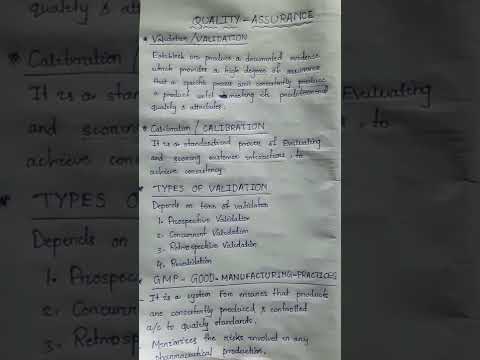 QUALITY - ASSURANCE
* Validation / VALIDATION
Establish one produce a documented evidence
which provides a high degree of assurance
that a specific process will consistently produce
a product valid meeting its predetermined
quality & attributes.
* Calibration / CALIBRATION
It is a standardized process of Evaluating
and scoring customer interactions, to
achieve consistency.
* TYPES OF VALIDATION
Depends on form of validation
1. Prospective Validation
2. Concurrent Validation
3. Retrospective Validation
4. Revalidation
* GMP - GOOD - MANUFACTURING - PRACTICES
- It is a system for ensures that products
are consistently produced & controlled
a/c to quality standards.
- Minimizes the risks involved in any
pharmaceutical production.